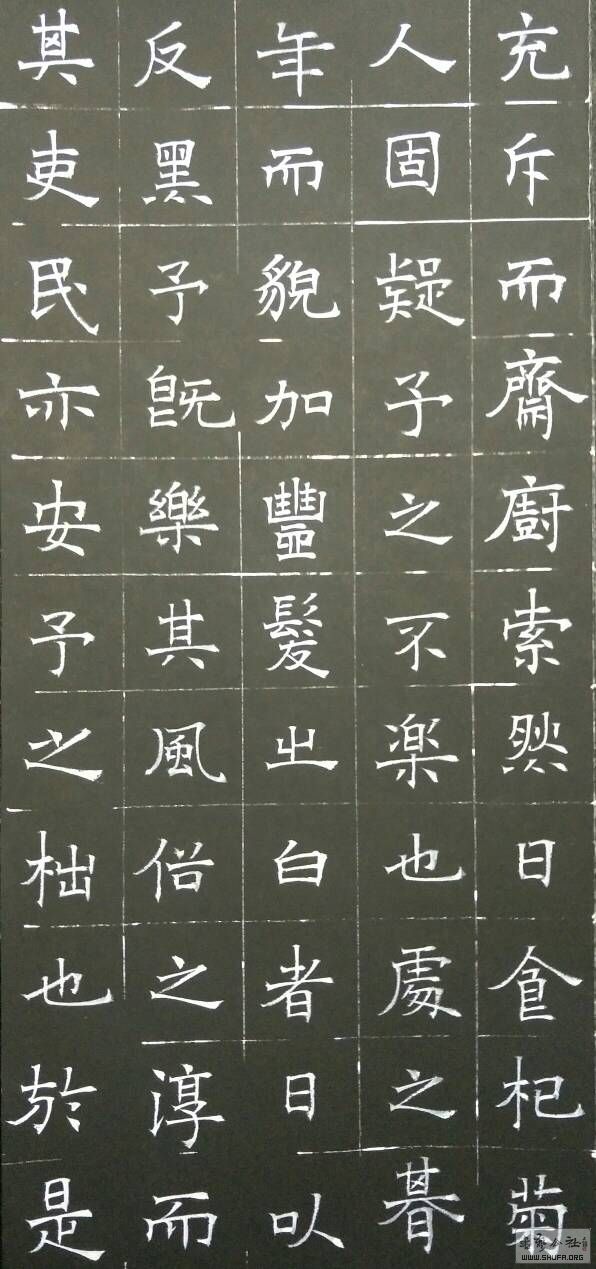 充斥而齋廚索然日食杞菊
人固疑予之不楽也處之朞
年而貌加豐髮㞢白者日以
反黑予既樂其風俗之淳而
其吏民亦安予之拙也於是
WWW.SHUFA.ORG